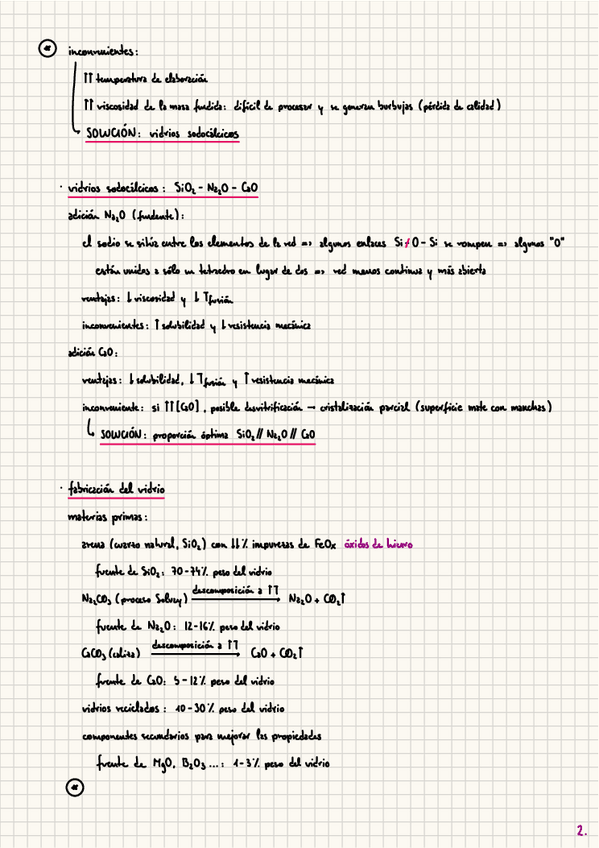 « inconvenientes:
↑↑ temperatura de elaboración
↑↑ viscosidad de la masa fundida: difícil de procesar y se generan burbujas (pérdida de calidad)
SOLUCIÓN: vidrios sodocálcicos
· vidrios sodocálcicos: SiO₂ - Na₂O - CaO
adición Na₂O (fundente):
el sodio se sitúa entre los elementos de la red => algunos enlaces Si≠O-Si se rompen => algunos "O"
están unidos a sólo un tetraedro en lugar de dos => red menos continua y más abierta
ventajas: ↓ viscosidad y ↓ Tfusión
inconvenientes: ↑ solubilidad y ↓ resistencia mecánica
adición CaO:
ventajas: ↓ solubilidad, ↓ Tfusión y ↑ resistencia mecánica
inconveniente: si ↑↑ [CaO], posible desvitrificación → cristalización parcial (superficie mate con manchas)
SOLUCIÓN: proporción óptima SiO₂ // Na₂O // CaO
· fabricación del vidrio
materias primas:
arena (cuarzo natural, SiO₂) con ↓↓% impurezas de FeOx óxidos de hierro
fuente de SiO₂: 70-74% peso del vidrio
Na₂CO₃ (proceso Solvay) descomposición a ↑T → Na₂O + CO₂↑
fuente de Na₂O: 12-16% peso del vidrio
CaCO₃ (caliza) descomposición a ↑T → CaO + CO₂↑
fuente de CaO: 5-12% peso del vidrio
vidrios reciclados: 10-30% peso del vidrio
componentes secundarios para mejorar las propiedades
fuente de MgO, B₂O₃...: 1-3% peso del vidrio
«
2.